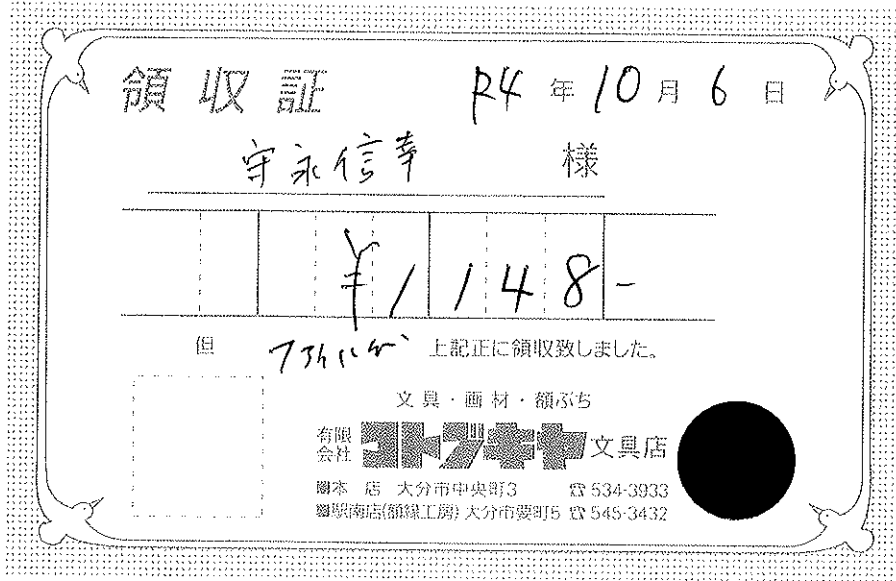 領収証 R4年10月6日
守永信幸 様
¥1148-
但 上記正に領収致しました。
文具・画材・額ぶち
有限会社 コトブキヤ 文具店
本店 大分市中央町3 ☎534-3933
駅南店(額縁工房) 大分市要町5 ☎545-3432